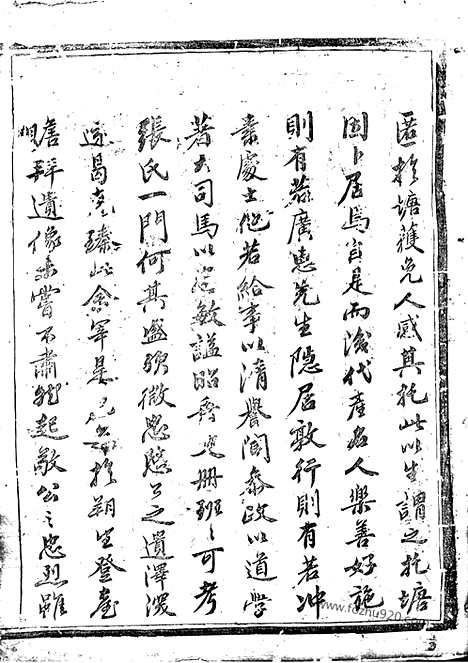 匿於塘獲免人感其托此以生謂之托塘
因卜居焉自是而後代產名人樂善好施
則有若廣惠先生隱居敦行則有若沖
素處士他若給事以清譽聞參政以道學
著大司馬以忠敏謚昭垂史冊班〻可考
張氏一門何其盛歟微忠臨公之遺澤深
遠曷克臻此余宰是邑每於朔望登堂
瞻拜遺像未嘗不肅然起敬公之忠烈雖
www.fozhu920.com